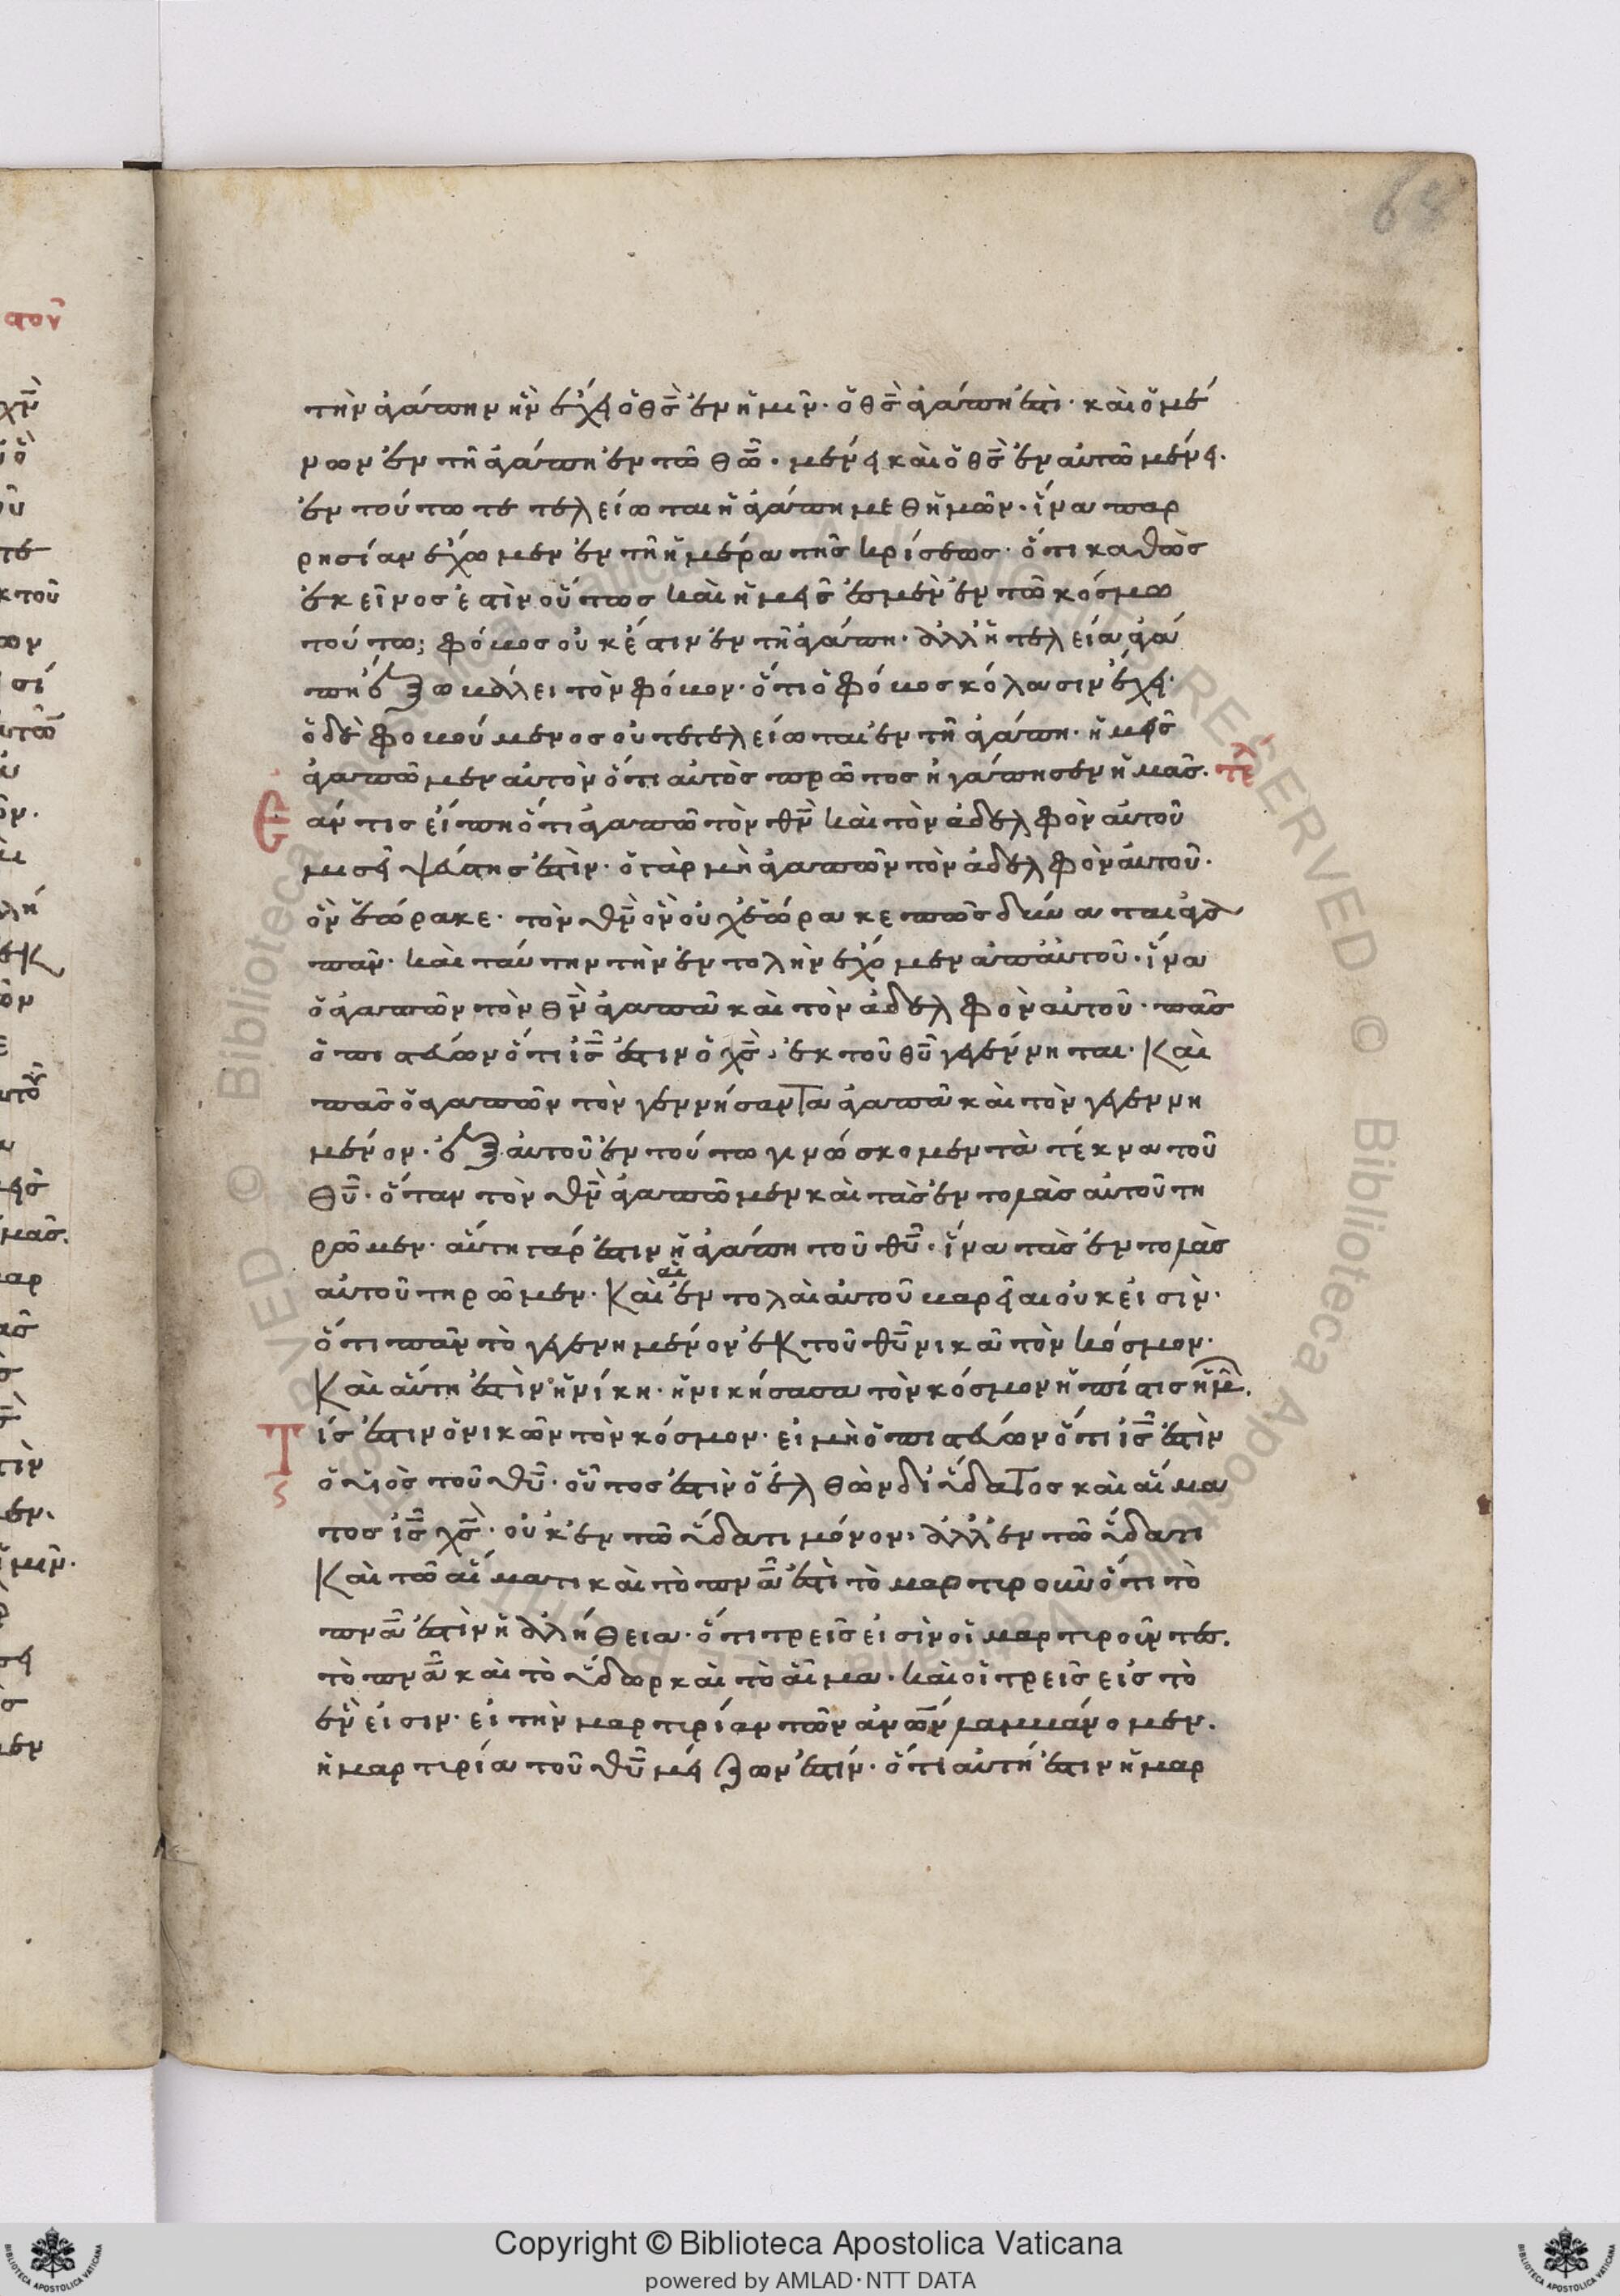 68
τὴν ἀγάπην ἣν ἔχει ὁ θς̅ ἐν ἡμῖν· ὁ θς̅ ἀγάπη ἐστί· καὶ ὁ μέ
νων ἐν τῆ ἀγάπη ἐν τῶ θω̅· μένει καὶ ὁ θς̅ ἐν αὐτῶ μένει·
ἐν τούτω τετελείωται ἡ ἀγάπη μεθ ἡμῶν· ἵνα παρ
ρησίαν ἔχωμεν ἐν τῆ ἡμέρα τῆς κρίσεως· ὅτι καθὼς
ἐκεῖνος ἐστὶν οὕτως καὶ ἡμεῖς ἐσμὲν ἐν τῶ κόσμω
τούτω; φόβος οὐκ ἔστιν ἐν τῆ ἀγάπη· ἀλλ ἡ τελεία ἀγά
πη ἔξω βάλλει τὸν φόβον· ὅτι ὁ φόβος κόλασιν ἔχει·
ὁ δὲ φοβούμενος οὐ τετελείωται ἐν τῆ ἀγάπη· ἡμεῖς
ἀγαπῶμεν αὐτὸν ὅτι αὐτὸς πρῶτος ἠγάπησεν ἡμᾶς· τε
Ἐάν τις εἴπη ὅτι ἀγαπῶ τὸν θν̅ καὶ τὸν ἀδελφὸν αὐτοῦ
μισεῖ ψεύστης ἐστὶν· ὁ γὰρ μὴ ἀγαπῶν τὸν ἀδελφὸν αὐτοῦ·
ὃν ἑώρακε· τὸν θν̅ ὃν οὐχ ἑώρακε πῶς δύναται ἀγα
πᾶν· καὶ ταύτην τὴν ἐντολὴν ἔχομεν ἀπ αὐτοῦ· ἵνα
ὁ ἀγαπῶν τὸν θν̅ ἀγαπᾶ καὶ τὸν ἀδελφὸν αὐτοῦ· πᾶς
ὁ πιστεύων ὅτι ις̅ ἐστιν ὁ χς̅· ἐκ τοῦ θυ̅ γεγέννηται· Καὶ
πᾶς ὁ ἀγαπῶν τὸν γεννήσαντα ἀγαπᾶ καὶ τὸν γεγεννη
μένον· ἐξ αὐτοῦ ἐν τούτω γινώσκομεν τὰ τέκνα τοῦ
θυ̅· ὅταν τὸν θν̅ ἀγαπῶμεν καὶ τὰς ἐντολὰς αὐτοῦ τη
ρῶμεν· αὕτη γάρ ἐστιν ἡ ἀγάπη τοῦ θυ̅· ἵνα τὰς ἐντολὰς
αὐτοῦ τηρῶμεν· Καὶ αἱ ἐντολαὶ αὐτοῦ βαρεῖαι οὐκ εἰσὶν·
ὅτι πᾶν τὸ γεγενημένον ἐκ τοῦ θυ̅ νικᾶ τὸν κόσμον·
Καὶ αὕτη ἐστὶν ἡ νίκη· ἡ νικήσασα τὸν κόσμον ἡ πίστις ἡμῶ̅.
Τίς ἐστιν ὁ νικῶν τὸν κόσμον· εἰ μὴ ὁ πιστεύων ὅτι ις̅ ἐστὶν
ὁ υἱὸς τοῦ θυ̅· οὗτος ἐστὶν ὁ ἐλθὼν δι ὕδατος καὶ αἵμα
τος ις̅ χς̅· οὐκ ἐν τῶ ὕδατι μόνον· ἀλλ ἐν τῶ ὕδατι
Καὶ τῶ αἵματι καὶ τὸ πνα̅ ἐστὶ τὸ μαρτιροῦν ὅτι τὸ
πνα̅ ἐστὶν ἡ ἀλήθεια· ὅτι τρεῖς εἰσὶν οἱ μαρτιροῦντες.
τὸ πνα̅ καὶ τὸ ὕδωρ καὶ τὸ αἷμα· καὶ οἱ τρεῖς εἰς τὸ
ἓν εἰσιν· εἰ τὴν μαρτιρίαν τῶν ἀνω̅ν λαμβάνομεν.
ἡ μαρτιρία τοῦ θυ̅ μείζων ἐστίν· ὅτι αὐτή ἐστιν ἡ μαρ
Copyright © Biblioteca Apostolica Vaticana
powered by AMLAD·NTT DATA